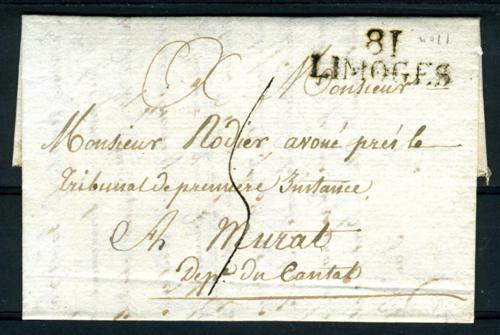 81
LIMOGES
Monsieur
Monsieur Rodier avoué près le
tribunal de première Instance
A Murat
Dept. du Cantal